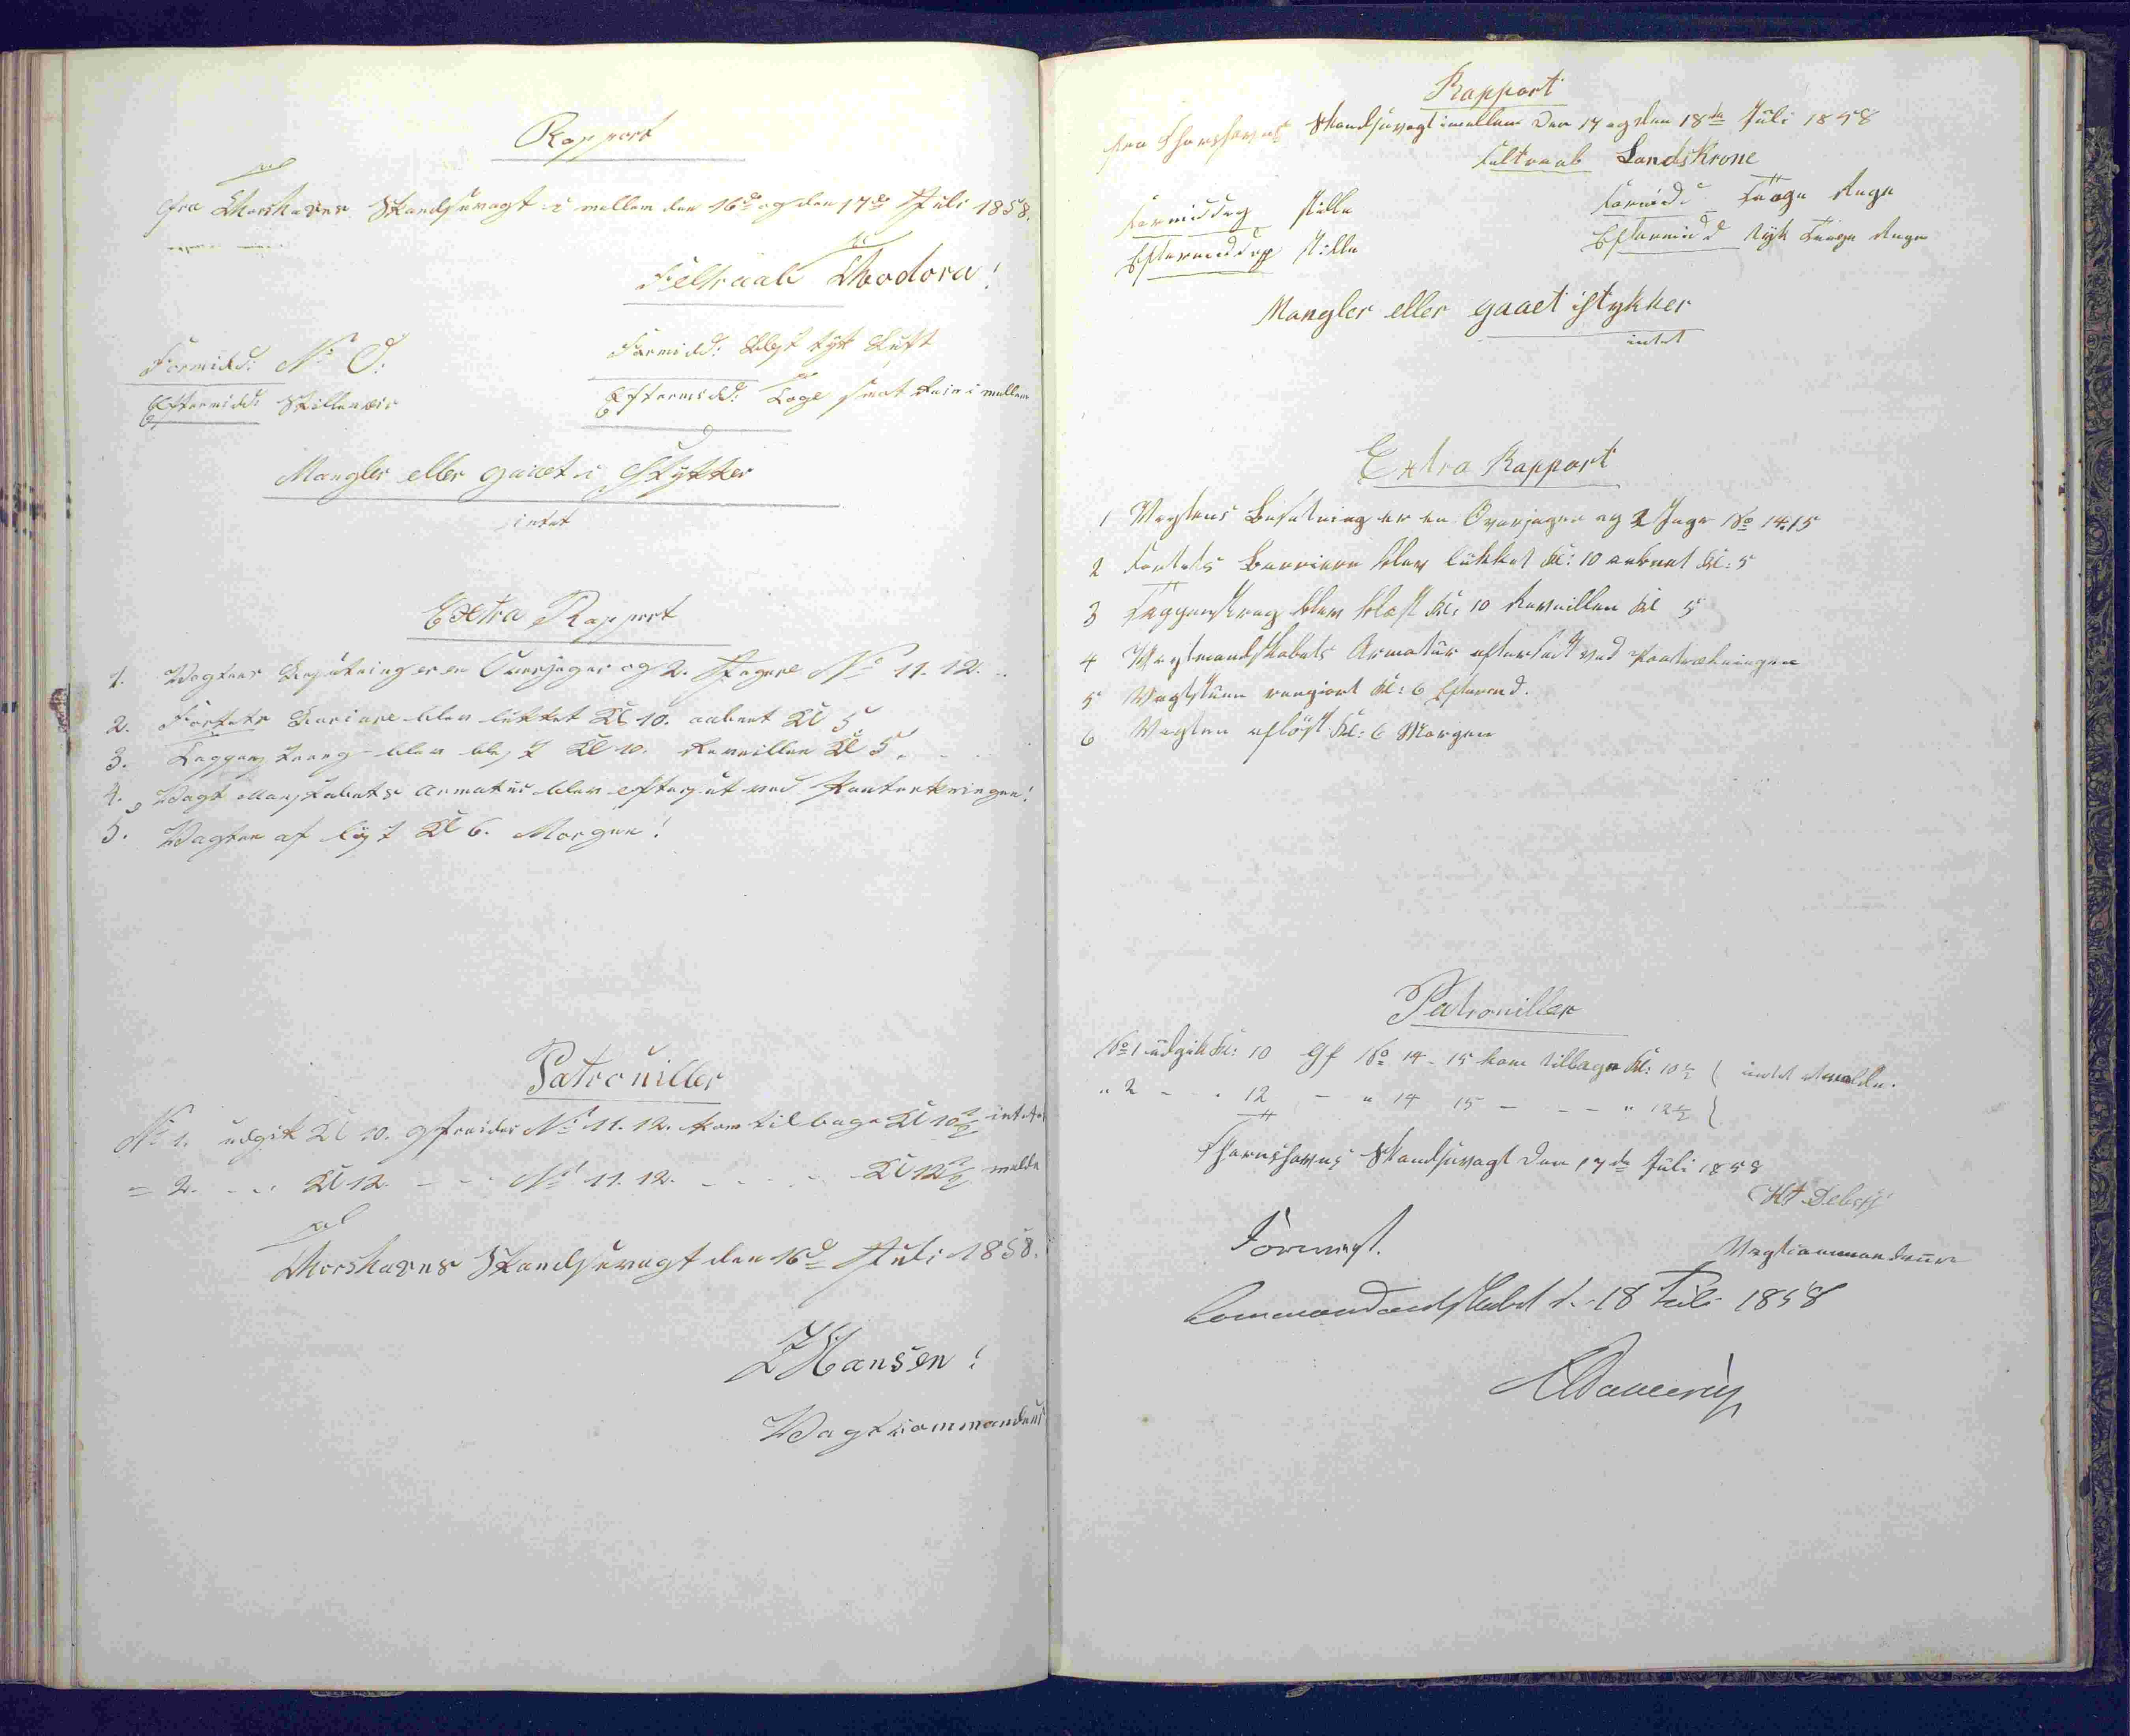 Rapport
fra Thorshavns Skandsevagt i mellem den 16de og den 17de Juli 1858.
Feltraab Thodora!
Formidd: No O:
Formidd: Blæst tyk Luft
Eftermidd: Stillevær
Eftermidd: Toge smat Rein i mellem
Mangler eller gaaet i Stykker
intet
Extra Rapport
1. Vagtens Besætning er en Overjæger og 2. Jægere No 11. 12.
2. Fortets Bariare blev lukket Kl 10. aabnet Kl 5
3. Tappenstreng blev blæst Kl 10. Reveillen Kl 5.
4. Vagt Manskabets Armatur blev efterset ved Fratrækningen!
5. Vagten af løst Kl 6. Morgen!
Patrouiller
No 1. udgik Kl 10. Gefreider No 11. 12. kom tilbage Kl 10 1/2 intet at
= 2. - - Kl 12. - - - No 11. 12. - - - - - Kl 12 1/2 melde
Thorshavns Skandsevagt den 16de Juli 1858.
Hansen!
Vagtcommandeur
Rapport
fra Thorshavns Skandsevagt imellem den 17 og den 18de Juli 1858
Feltraab Landskrone
Formiddag stille
Formidd: Taage Regn
Eftermiddag stille
Eftermidd tyk Taage Regn
Mangler eller gaaet istykker
intet
Extra Rapport
1 Vagtens Besætning er en Overjæger og 2 Jæge No 14.15
2 Fortets Barriere blev lukket Kl: 10 aabnet Kl: 5
3 Tappenstreng blev blæst Kl: 10 Reveillen Kl 5
4 Vagtmandskabets Armatur efterseet ved Fratrækningen
5 Vagtstuen rengiort Kl: 6 Eftermd.
6 Vagten afløst Kl: 6 Morgen
Patrouiller
No 1 udgik Kl: 10 Gf No 14 - 15 kom tilbage Kl: 10 1/2 intet at melde.
" 2 - " 12 - " 14 15 - - - " 12 1/2
Thorshavns Skandsevagt den 17de Juli 1858
Debess
Vagtcommandeur
Forevist.
Commandantskabet d. 18 Juli 1858
Dahlerup